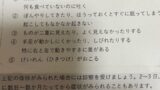 何も食べていないのに吐く
② ぼんやりしてきたり、ほうっておくとすぐに眠ってしまい
起こしてもなかなか起きない
③ ものが二重に見えたり、よく見えなかったりする
④ 手足が動かしにくかったり、しびれたりする
特に右と左で動きやすさに差がある
⑤ けいれん（ひきつけ）がおこる
上記の症状がみられた場合には診察を受けましょう。2～3日